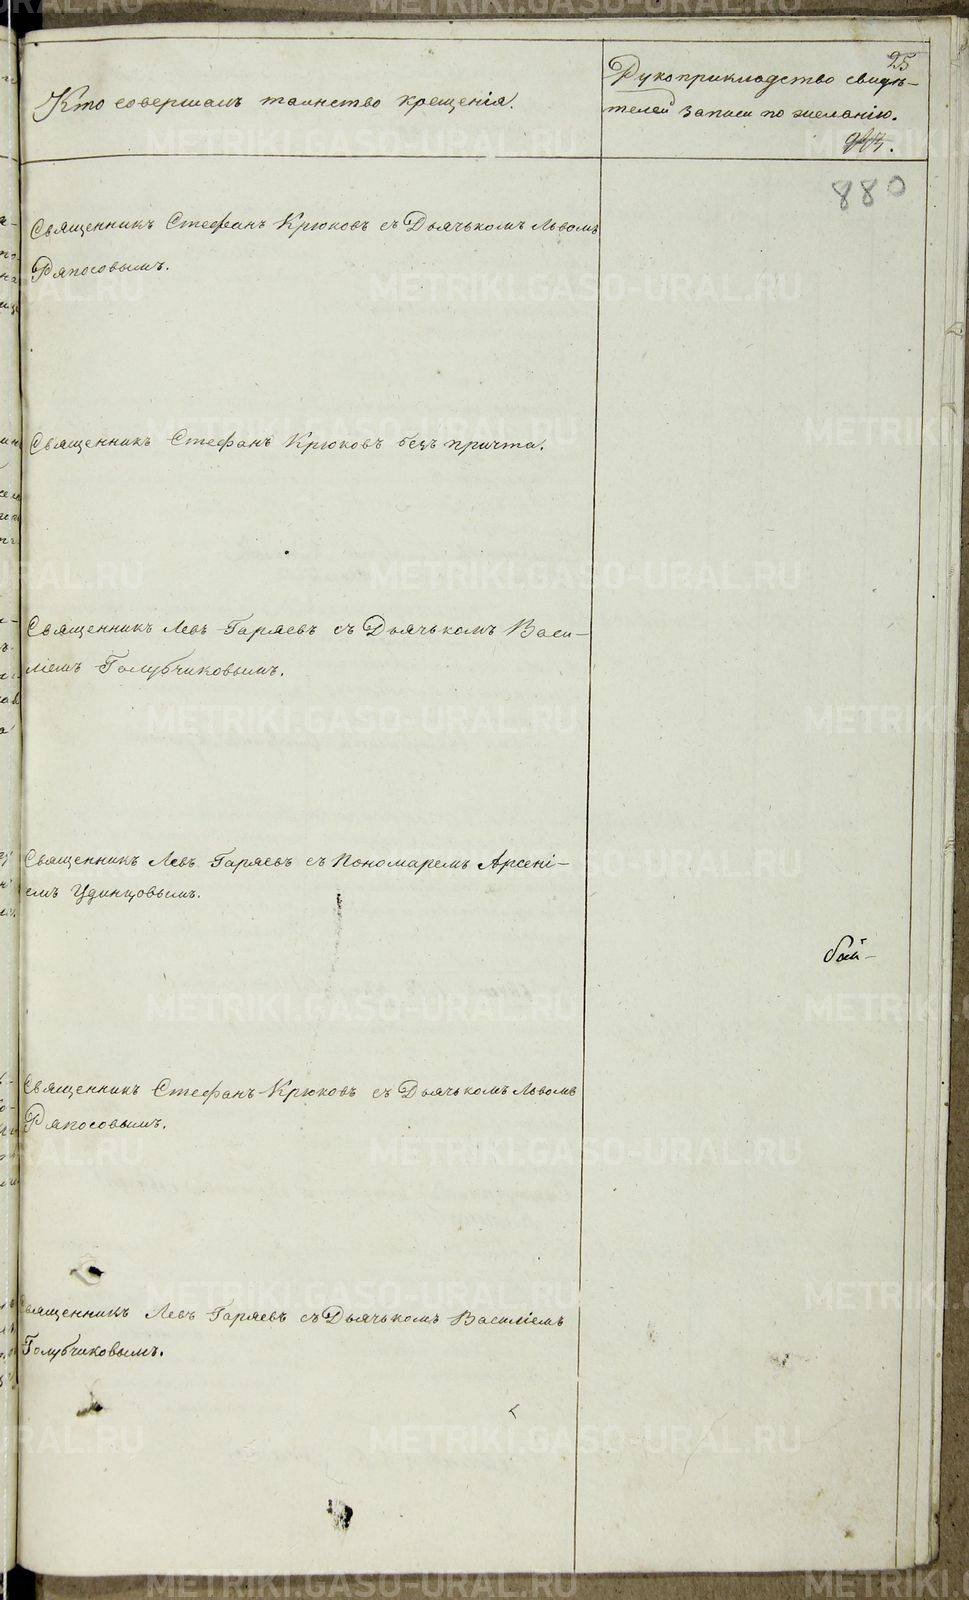 25
Кто совершалъ таинство крещенія.
Рукоприкладство свидѣ-
телей записи по желанію.
880
Священникъ Стефанъ Крюковъ съ Дьячькомъ Львомъ
Ряпосовымъ.
Священникъ Стефанъ Крюковъ безъ причта.
Священникъ Левъ Гаряевъ съ Дьячькомъ Васи-
ліемъ Голубчиковымъ.
Священникъ Левъ Гаряевъ съ Пономаремъ Арсені-
емъ Удинцовымъ.
Священникъ Стефанъ Крюковъ съ Дьячькомъ Львомъ
Ряпосовымъ.
Священникъ Левъ Гаряевъ съ Дьячькомъ Василіемъ
Голубчиковымъ.
METRIKI.GASO-URAL.RU